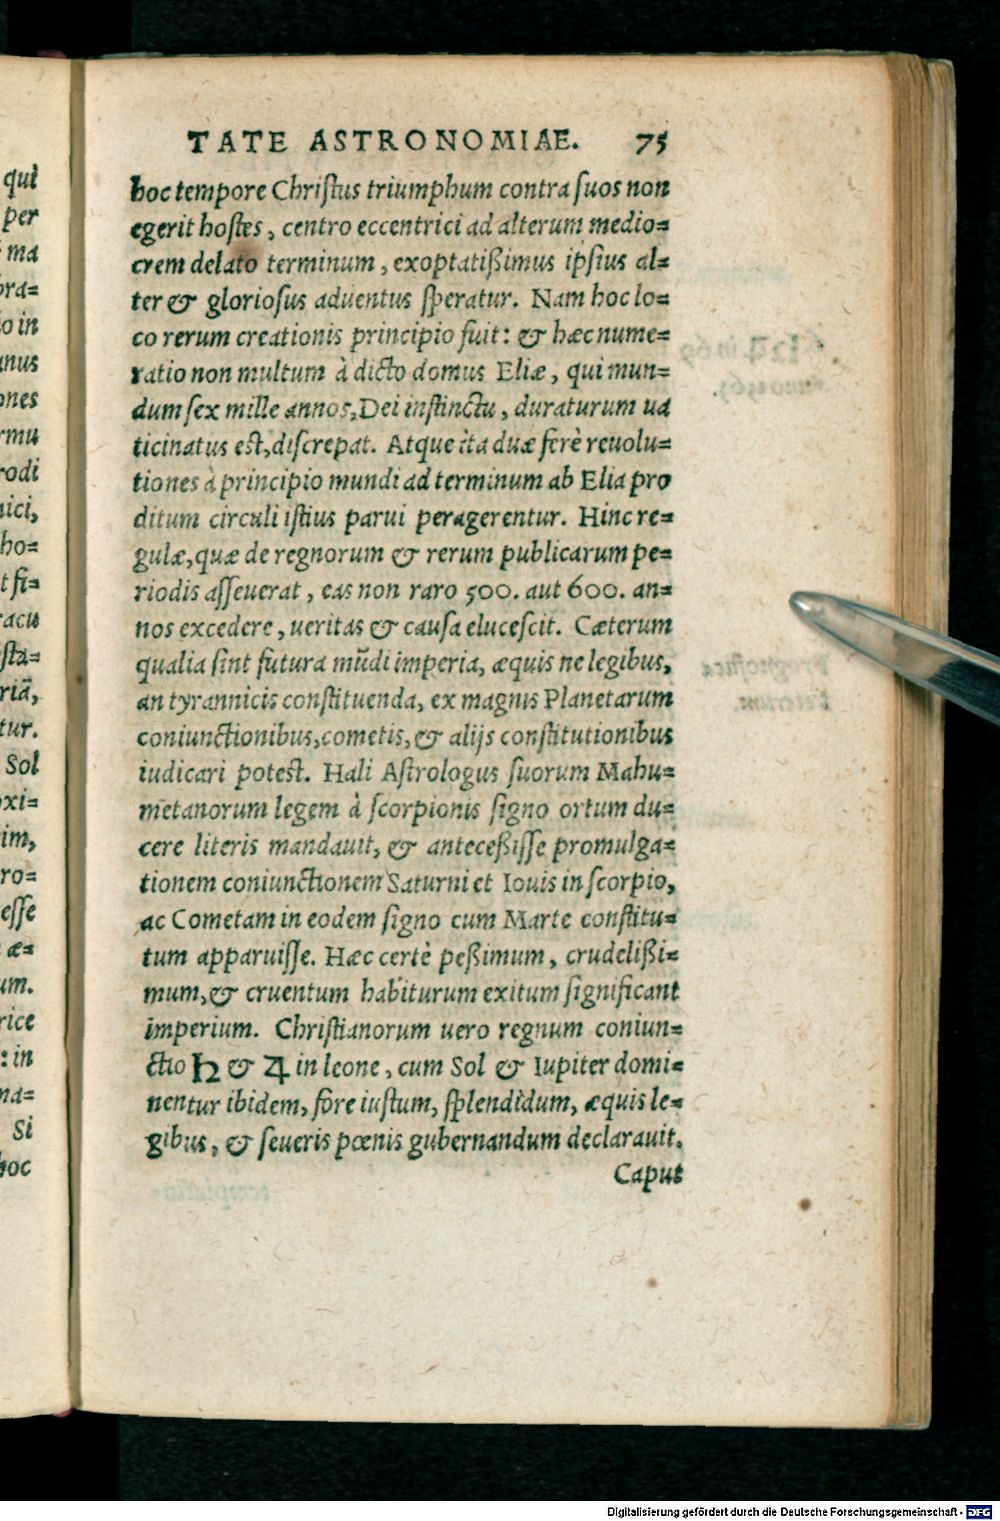 TATE ASTRONOMIAE. 75
hoc tempore Christus triumphum contra suos non
egerit hostes, centro eccentrici ad alterum medio=
crem delato terminum, exoptatißimus ipsius al=
ter & gloriosus aduentus speratur. Nam hoc lo=
co rerum creationis principio fuit: & hæc nume=
ratio non multum à dicto domus Eliæ, qui mun=
dum sex mille annos, Dei instinctu, duraturum ua
ticinatus est, discrepat. Atque ita duæ ferè reuolu=
tiones à principio mundi ad terminum ab Elia pro
ditum circuli istius parui peragerentur. Hinc re=
gulæ, quæ de regnorum & rerum publicarum pe=
riodis asseuerat, eas non raro 500. aut 600. an=
nos excedere, ueritas & causa elucescit. Cæterum
qualia sint futura mũdi imperia, æquis ne legibus,
an tyrannicis constituenda, ex magnis Planetarum
coniunctionibus, cometis, & alijs constitutionibus
iudicari potest. Hali Astrologus suorum Mahu=
metanorum legem à scorpionis signo ortum du=
cere literis mandauit, & anteceßisse promulga=
tionem coniunctionem Saturni et Iouis in scorpio,
ac Cometam in eodem signo cum Marte constitu=
tum apparuisse. Hæc certè peßimum, crudelißi=
mum, & cruentum habiturum exitum significant
imperium. Christianorum uero regnum coniun=
ctio ♄ & ♃ in leone, cum Sol & Iupiter domi=
nentur ibidem, fore iustum, splendidum, æquis le=
gibus, & seueris pœnis gubernandum declarauit.
Caput
qui
per
ma
bra=
o in
anus
ones
rmu
rodi
nici,
ho=
t fi=
racu
sta=
riã,
tur.
Sol
oxi=
im,
ro=
esse
æ=
um.
rice
: in
na=
Si
hoc
Digitalisierung gefördert durch die Deutsche Forschungsgemeinschaft - DFG